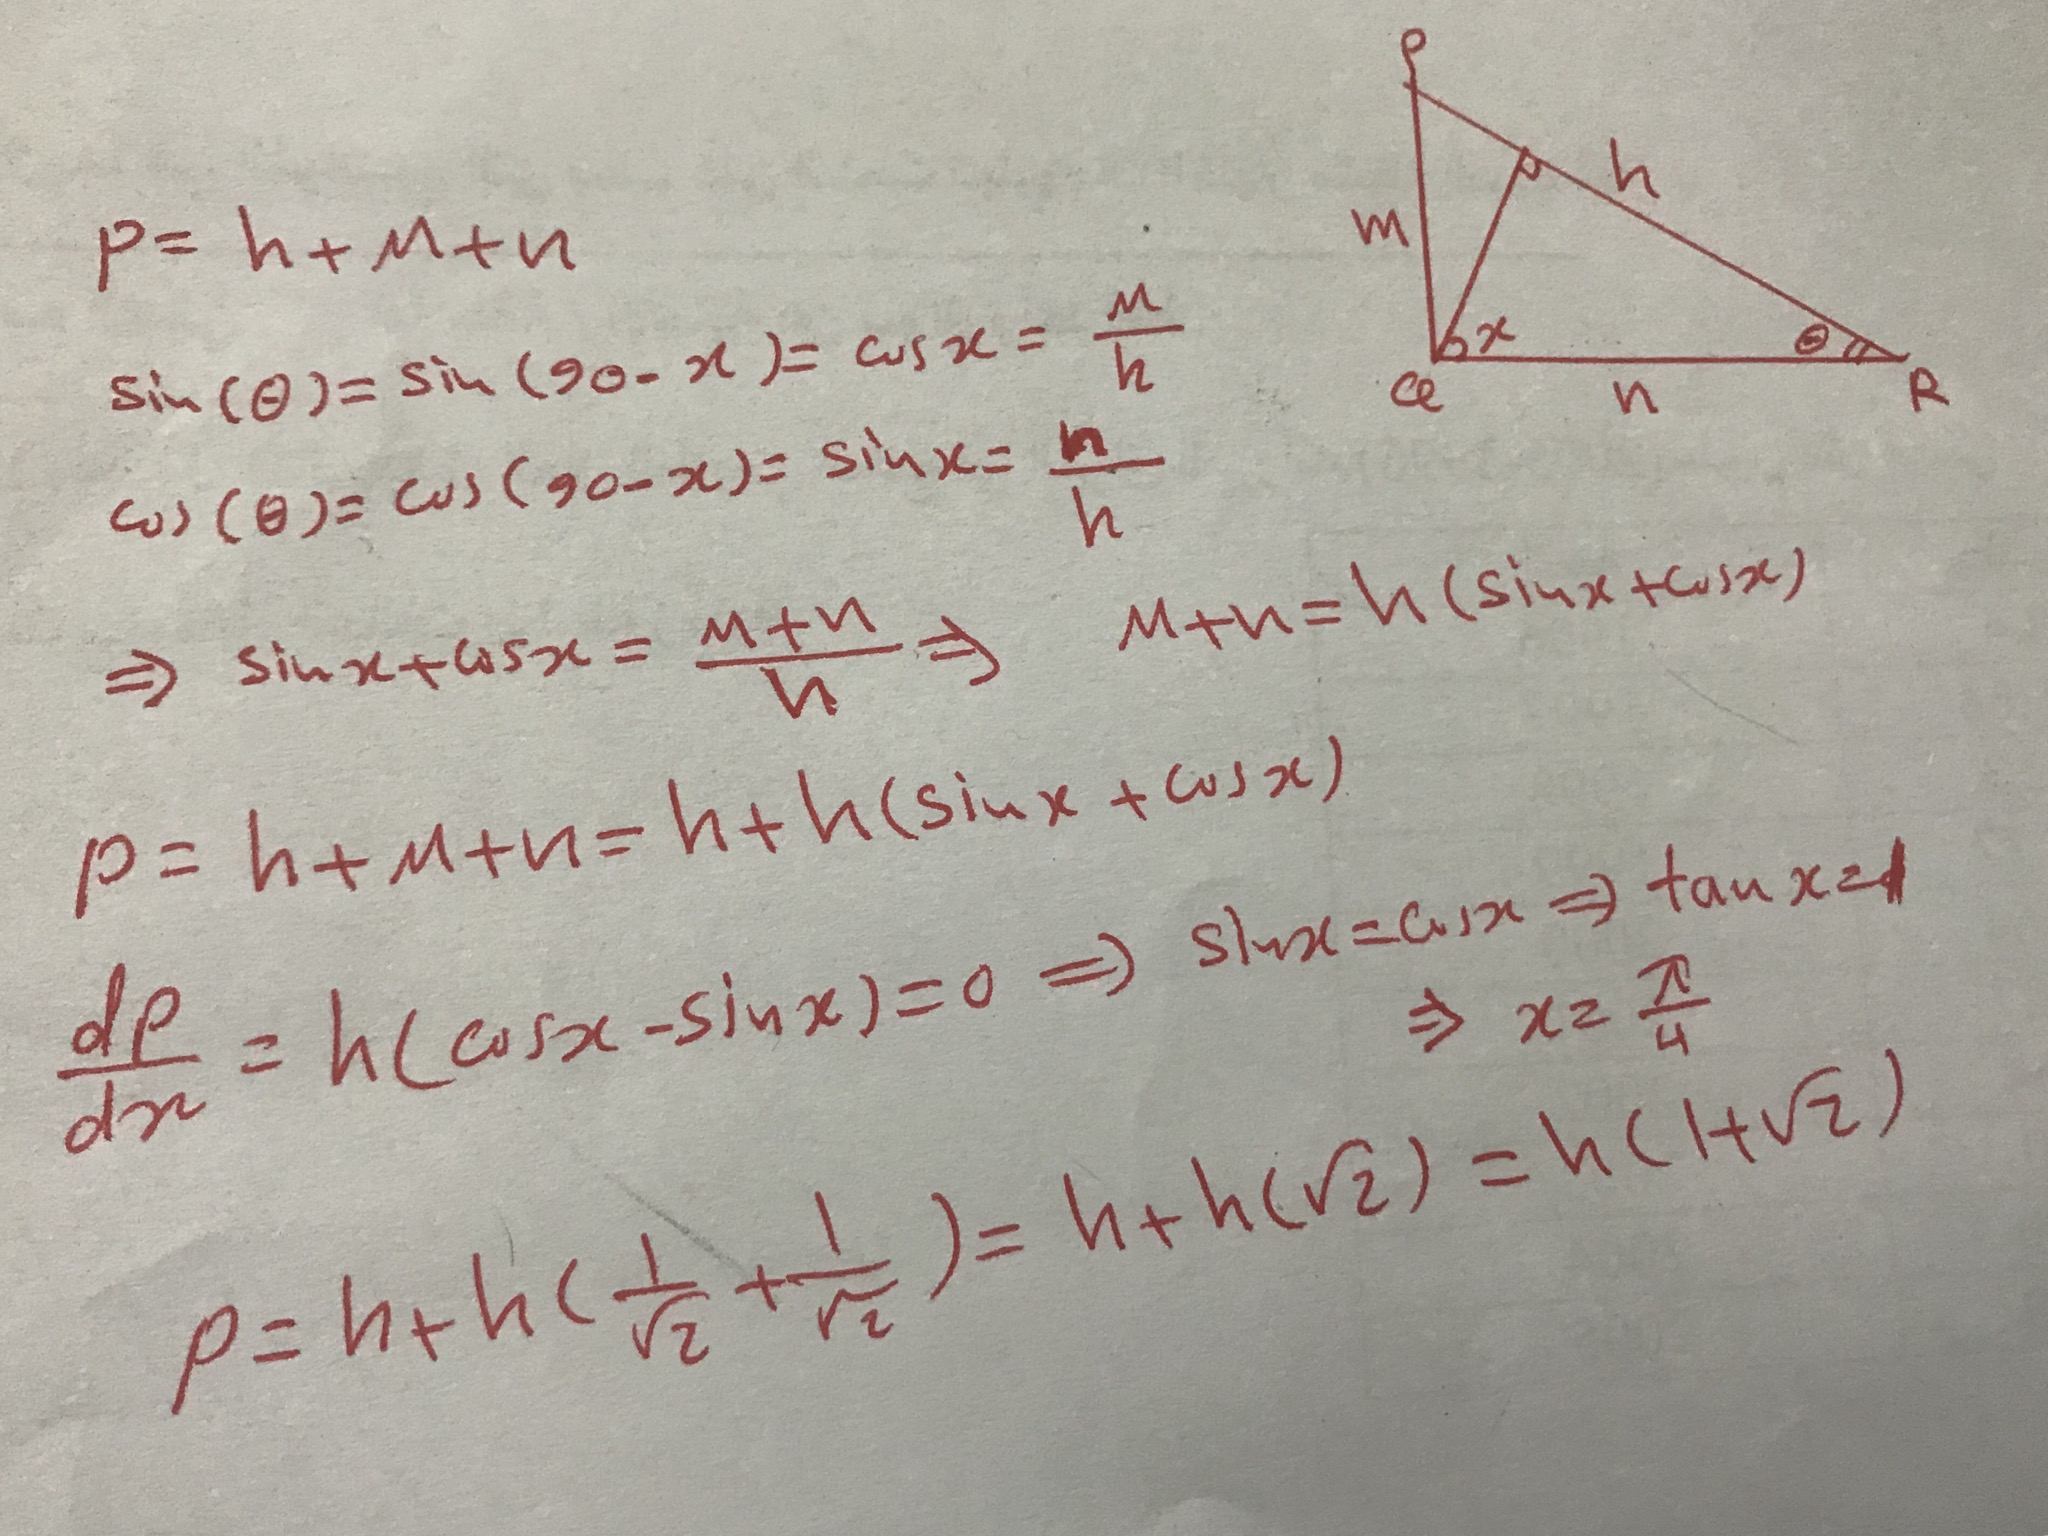 P
h
m
x
θ
Q
n
R
P = h + m + n
sin(θ) = sin(90 - x) = cos x = m/h
cos(θ) = cos(90 - x) = sin x = n/h
⇒ sin x + cos x = (m + n)/h ⇒ m + n = h(sin x + cos x)
P = h + m + n = h + h(sin x + cos x)
dP/dx = h(cos x - sin x) = 0 ⇒ sin x = cos x ⇒ tan x = 1
⇒ x = π/4
P = h + h(1/√2 + 1/√2) = h + h(√2) = h(1 + √2)